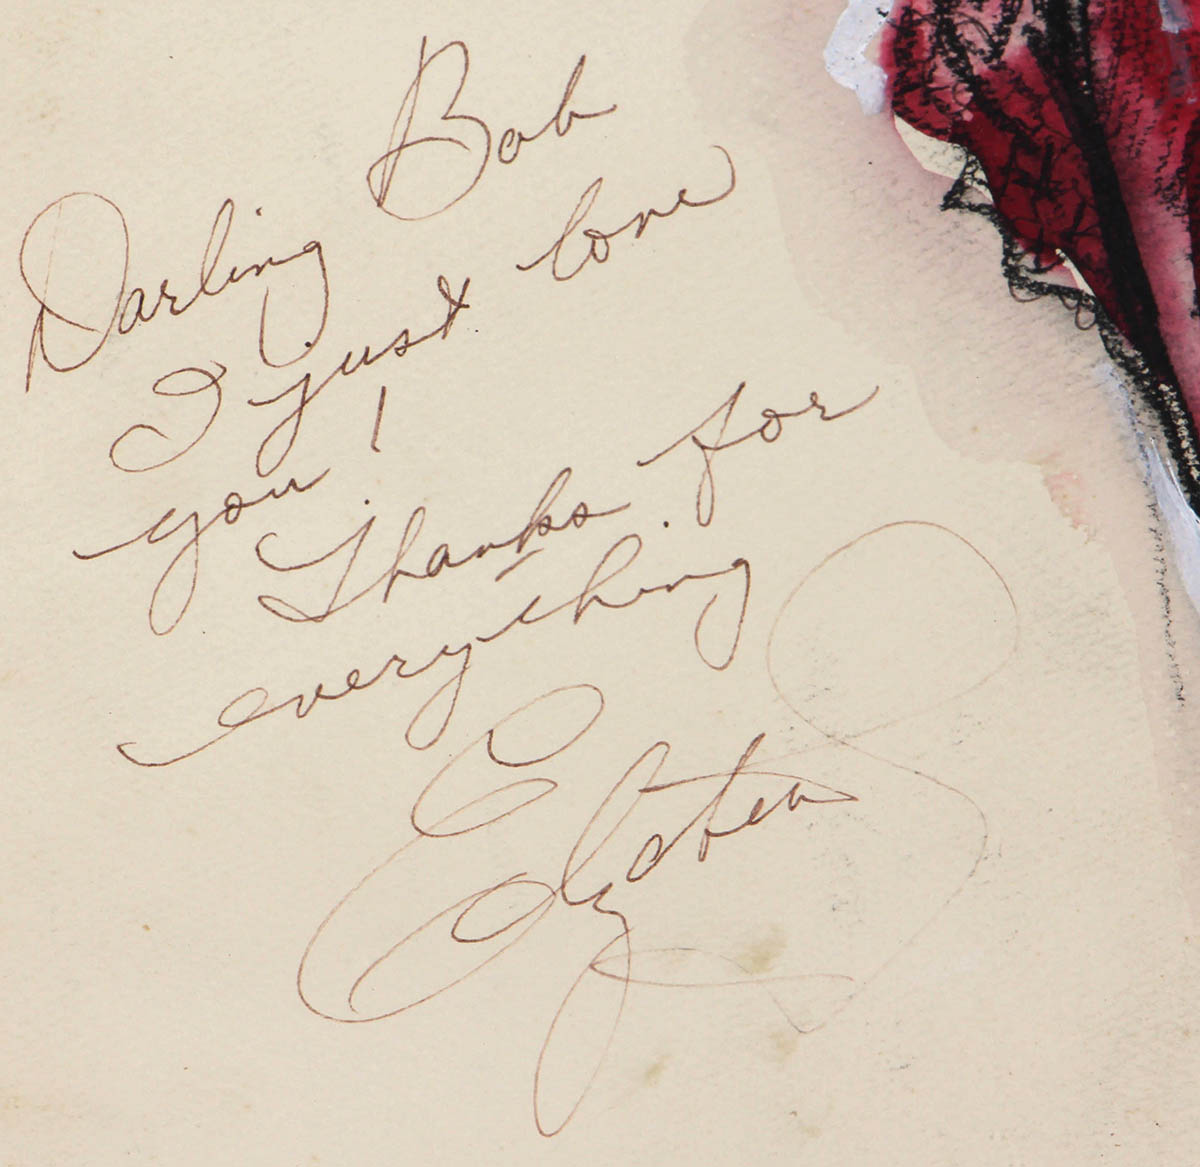 Darling Bob
I just love
you!
Thanks for
everything
Elizabeth